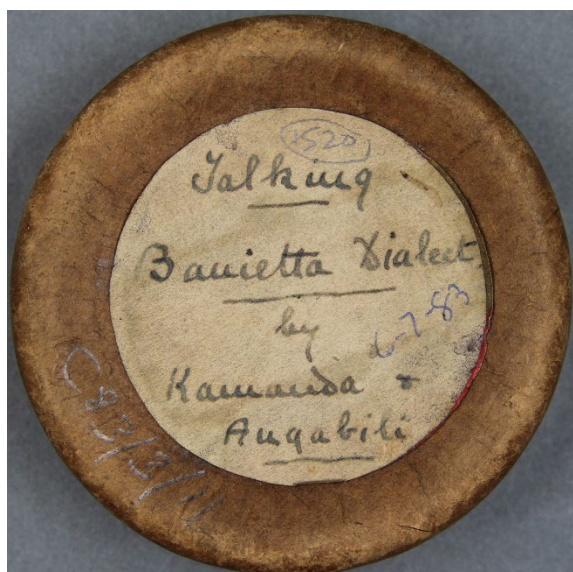 1520
Talking
Banietta Dialect
by
6-7-83
Kamanda &
Angabili
C82/3/11